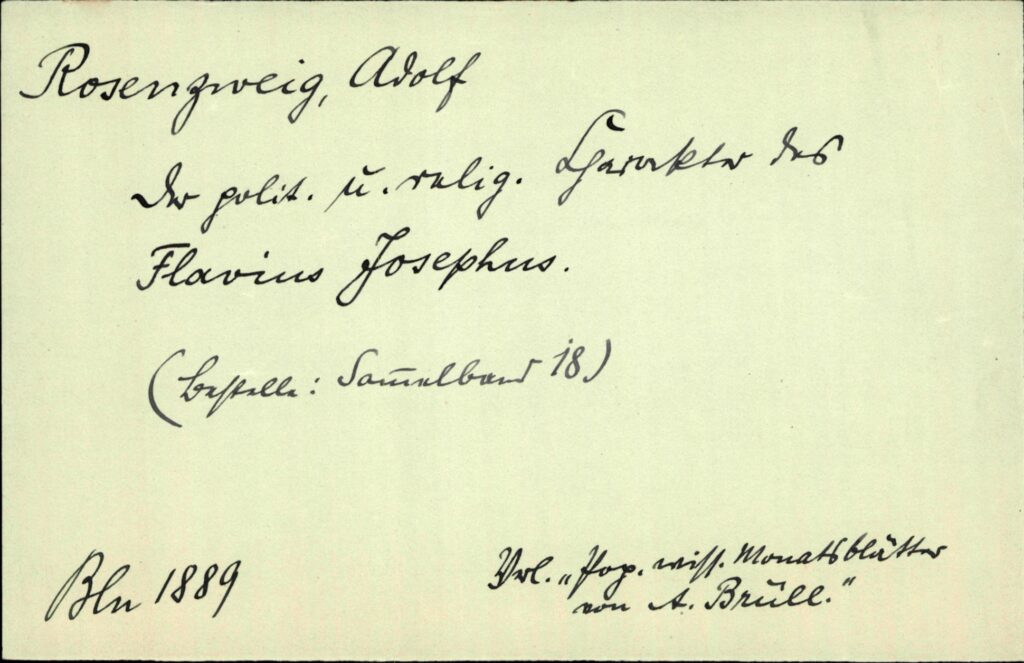 Rosenzweig, Adolf
Der polit. u. relig. Charakter des
Flavius Josephus.
(bestelle: Sammelband 18)
Bln 1889
Verl. „Pop. wiss. Monatsblätter
von A. Brüll."